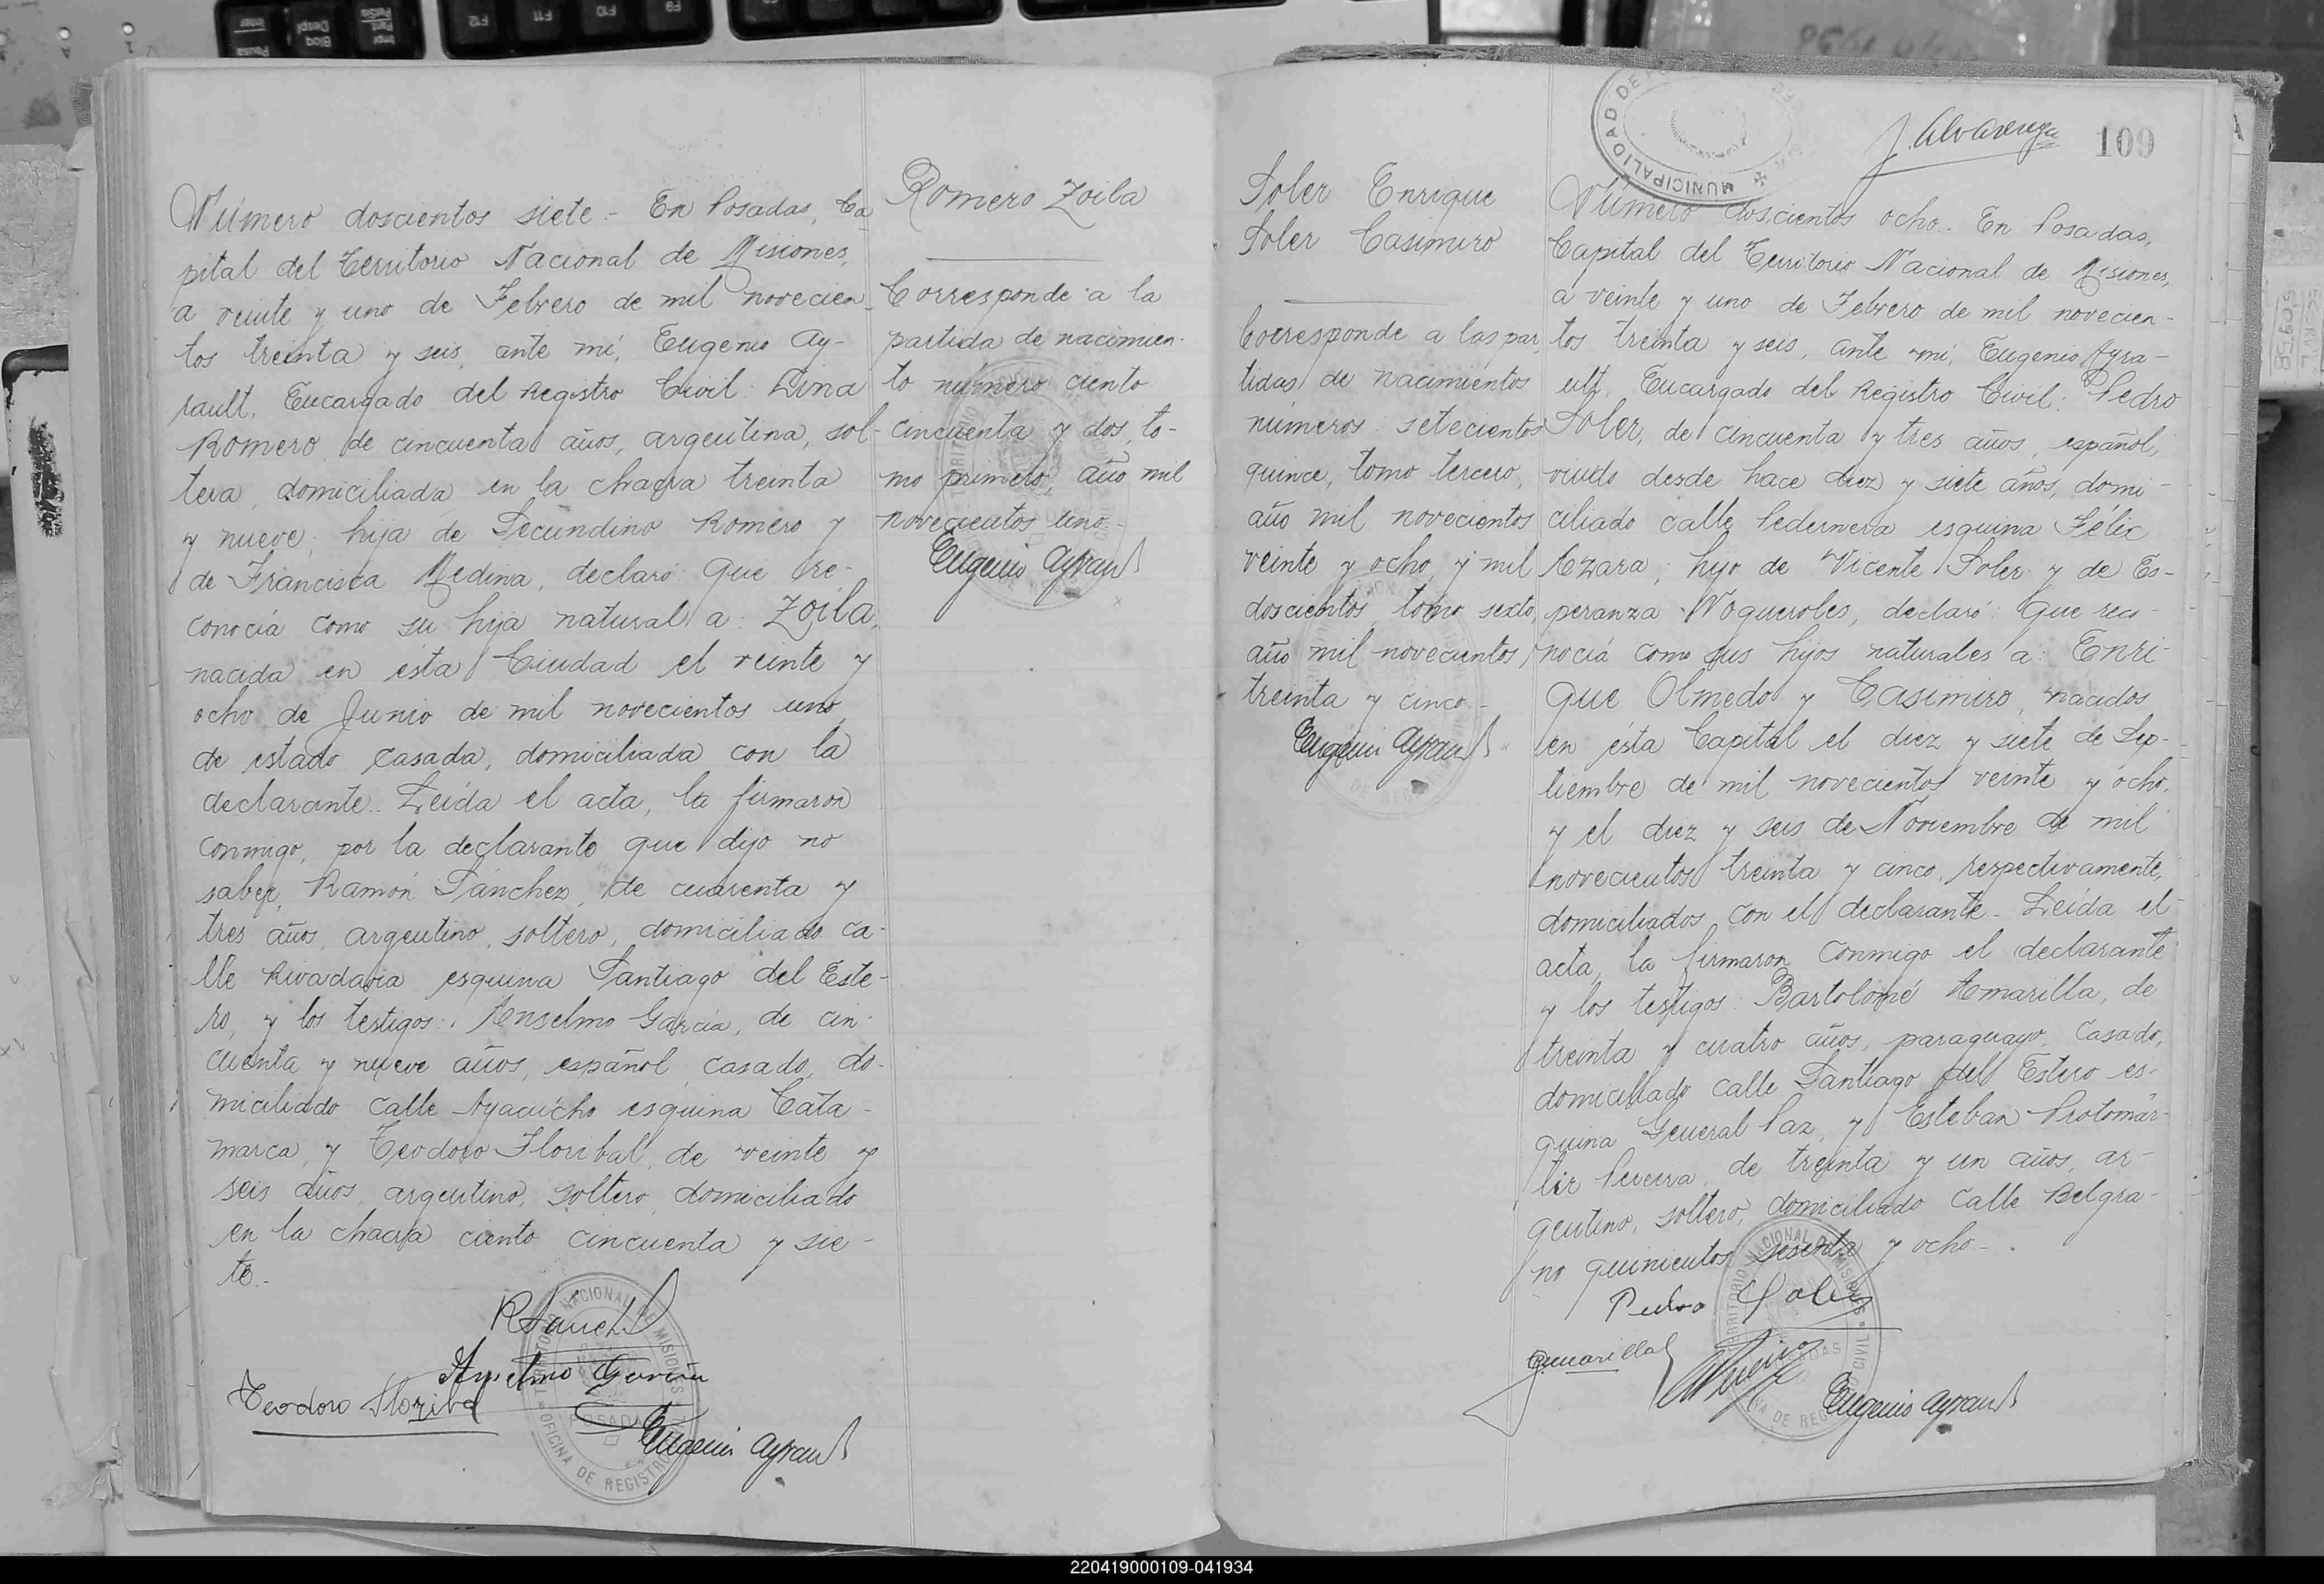 Número doscientos siete.- En Posadas, Ca-
pital del Territorio Nacional de Misiones,
a veinte y uno de Febrero de mil novecien-
tos treinta y seis, ante mí, Eugenio Ay-
rault, Encargado del Registro Civil: Lina
Romero, de cincuenta años, argentina, sol-
tera, domiciliada en la chacra treinta
y nueve; hija de Secundino Romero y
de Francisca Medina, declaró: Que re-
conocía como su hija natural a: Zoila,
nacida en ésta Ciudad el veinte y
ocho de Junio de mil novecientos uno,
de estado casada, domiciliada con la
declarante.- Leída el acta, la firmaron
conmigo, por la declarante que dijo no
saber, Ramón Sánchez, de cuarenta y
tres años, argentino, soltero, domiciliado ca-
lle Rivadavia esquina Santiago del Este-
ro, y los testigos: Anselmo García, de cin-
cuenta y nueve años, español, casado, do-
miciliado calle Ayacucho esquina Cata-
marca, y Teodoro Floribal, de veinte y
seis años, argentino, soltero, domiciliado
en la chacra ciento cincuenta y sie-
te.-
Anselmo García
Teodoro Floribal
Eugenio Ayrault
Romero Zoila
Corresponde a la
partida de nacimien-
to número ciento
cincuenta y dos, to-
mo primero, año mil
novecientos uno.-
Eugenio Ayrault
J. Alvarenga 109
MUNICIPALIDAD DE
Soler Enrique
Soler Casimiro
Corresponde a las par-
tidas de nacimientos
números: setecientos
quince, tomo tercero,
año mil novecientos
veinte y ocho, y mil
doscientos, tomo sexto,
año mil novecientos
treinta y cinco.-
Eugenio Ayrault
Número doscientos ocho.- En Posadas,
Capital del Territorio Nacional de Misiones,
a veinte y uno de Febrero de mil novecien-
tos treinta y seis, ante mí, Eugenio Ayra-
ult, Encargado del Registro Civil: Pedro
Soler, de cincuenta y tres años, español,
viudo desde hace diez y siete años, domi-
ciliado calle Pedernera esquina Félix
Azara; hijo de Vicente Soler y de Es-
peranza Nogueroles, declaró: Que reco-
nocía como sus hijos naturales a: Enri-
que Olmedo y Casimiro, nacidos
en ésta Capital el diez y siete de Sep-
tiembre de mil novecientos veinte y ocho,
y el diez y seis de Noviembre de mil
novecientos treinta y cinco, respectivamente,
domiciliados con el declarante.- Leída el
acta, la firmaron conmigo el declarante
y los testigos: Bartolomé Amarilla, de
treinta y cuatro años, paraguayo, casado,
domiciliado calle Santiago del Estero es-
quina General Paz, y Esteban Protomár-
tir Pereira, de treinta y un años, ar-
gentino, soltero, domiciliado calle Belgra-
no quinientos sesenta y ocho.-
Pedro Soler
Amarilla
Eugenio Ayrault
220419000109-041934